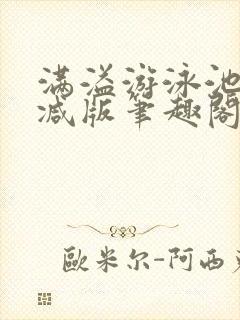 满溢游泳池
减版笔趣阁
歐米尔-阿西